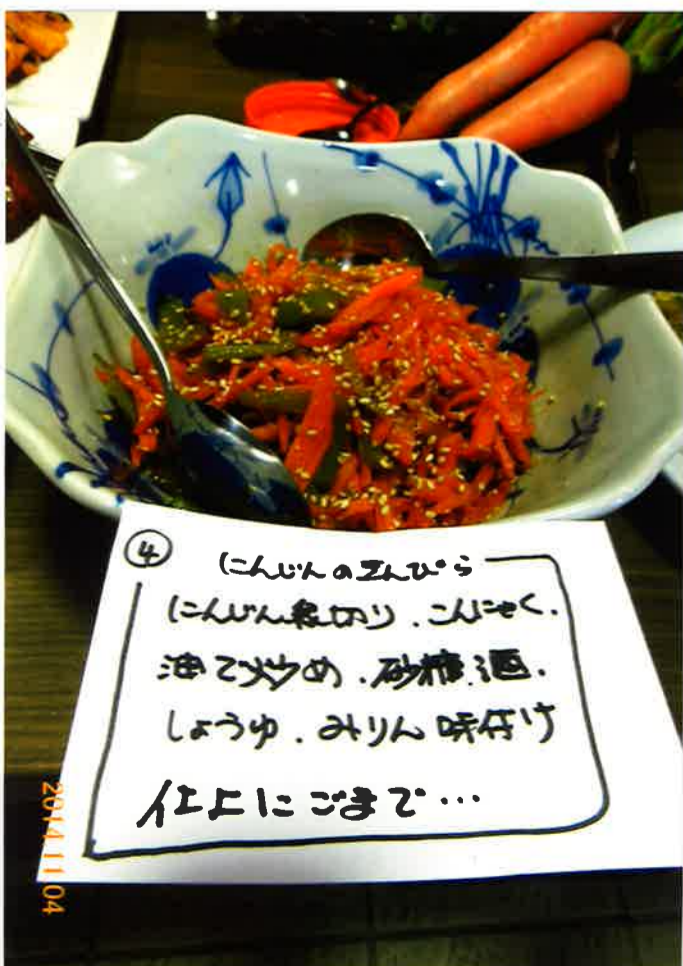 ④ にんじんのきんぴら
にんじん千切り、こんにゃく、
油で炒め、砂糖、酒、
しょうゆ、みりん味付け
仕上にごまで…
2014.11.04